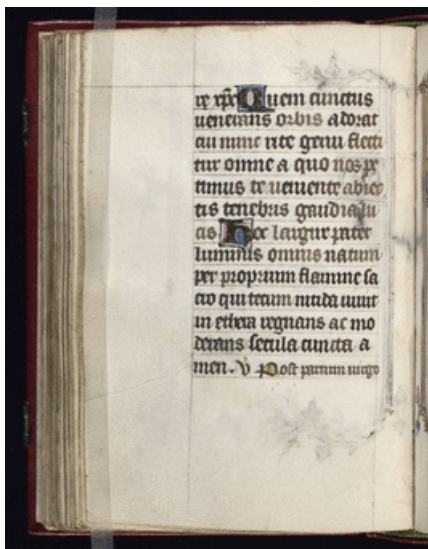 re xp̄e Quem cunctus
venerans orbis adorat
cui nunc rite genu flecti
tur omne a quo nos pe
timus te veniente abiec
tis tenebris gaudia lu
cis Hec largire pater
luminis omnis natum
per proprium flamine sa
cro qui tecum nitida vivit
in ethera regnans ac mo
derans secula cuncta a
men. V Post partum virgo